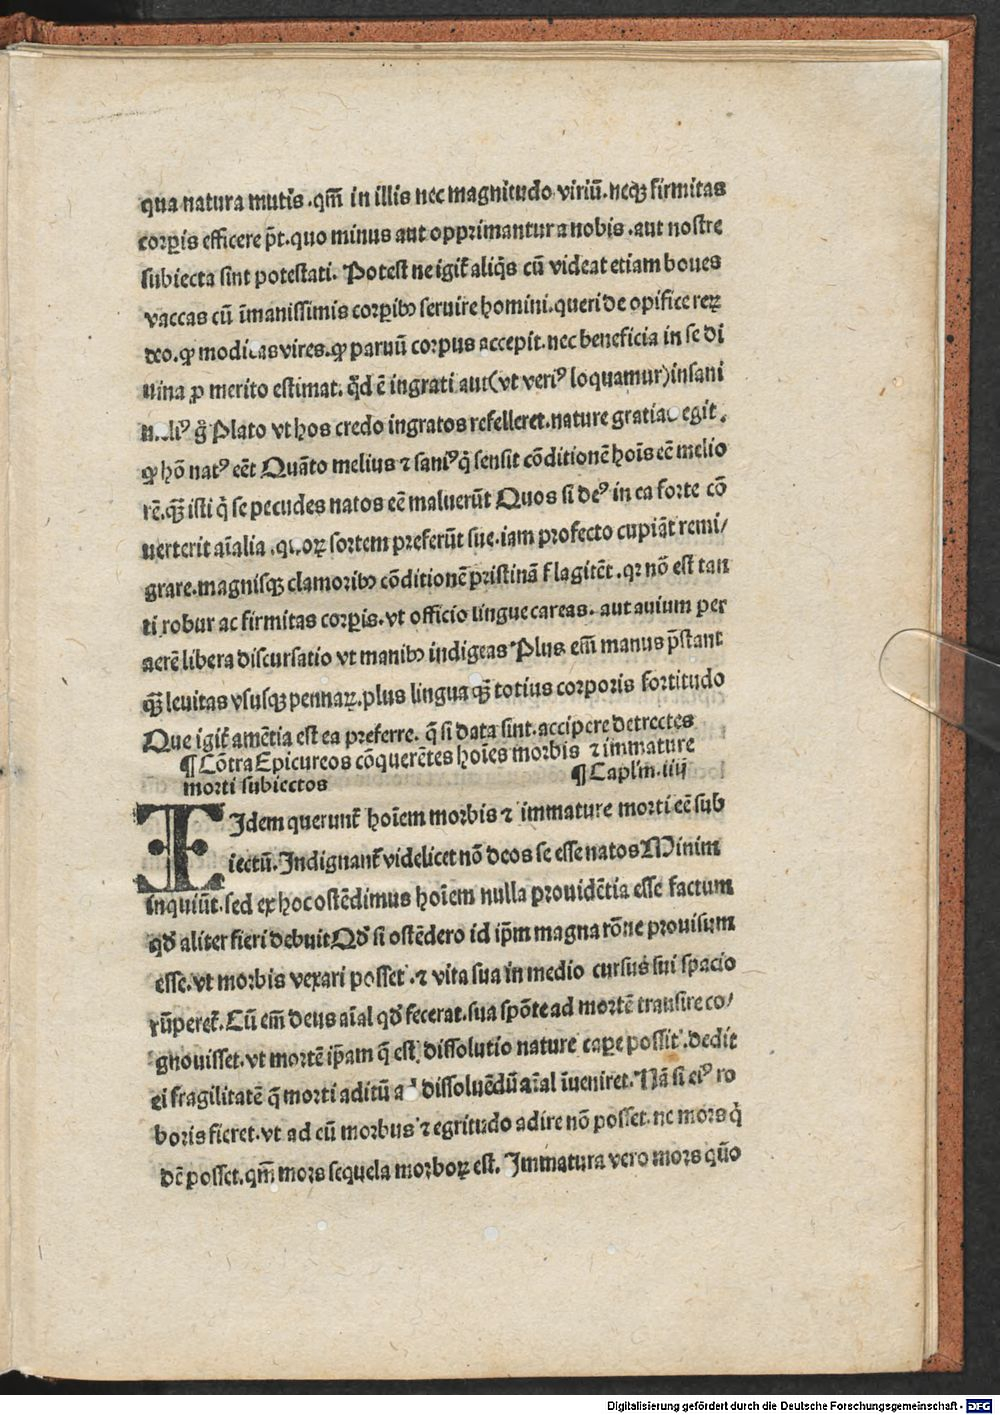 qua natura mutis .qm̄ in illis nec magnitudo viriū. neqꝫ firmitas
corꝑis efficere p̄t. quo minus aut opprimantur a nobis .aut nostre
subiecta sint potestati. Potest ne igit̄ aliq̄s cū videat etiam boues
vaccas cū īmanissimis corꝑibꝰ seruire homini. queri de opifice reꝝ
deo. ꝙ modicas vires. ꝙ paruū corpus accepit. nec beneficia in se di
uina ꝓ merito estimat. qd̄ ē ingrati aut (vt veriꝰ loquamur) insani
g̊ Plato vt hos credo ingratos refelleret. nature gratias egit .
ꝙ hō natꝰ eēt Quāto melius ⁊ saniꝰ q̇ sensit cōditionē hoīs eē melio
rē. qꝫ̄ isti q̇ se pecudes natos eē maluerūt Quos si deꝰ in ea forte cō
uerterit aīalia .quoꝝ sortem preferūt sue. iam profecto cupiāt remi/
grare. magnisqꝫ clamoribꝰ cōditionē pristinā flagitēt .qꝛ nō est tan
ti robur ac firmitas corꝑis. vt officio lingue careas. aut auium per
aerē libera discursatio vt manibꝰ indigeas Plus em̄ manus p̄stant
qꝫ̄ leuitas vsusqꝫ pennaꝝ. plus lingua qꝫ̄ totius corporis fortitudo
Que igit̄ amētia est ea preferre. q̄ si data sint. accipere detrectes
¶ Cōtra Epicureos cōquerētes hoīes morbis ⁊ immature
morti subiectos ¶ Caplm̄. iiij
IJdem querunt̄ hoīem morbis ⁊ immature morti eē sub
iectū. Indignant̄ videlicet nō deos se esse natos Minim
inquiūt. sed ex hoc ostēdimus hoīem nulla prouidētia esse factum
qd̄ aliter fieri debuit Qd̄ si ostēdero id ip̄m magna rōne prouisum
esse. vt morbis vexari posset .⁊ vita sua in medio cursus sui spacio
rūperet̄. Cū em̄ deus aīal qd̄ fecerat. sua spōte ad mortē transire co/
gnouisset. vt mortē ip̄am q̄ est dissolutio nature caꝑe possit .dedit
ei fragilitatē q̄ morti aditū ad dissoluēdū aīal īueniret. Nā si eiꝰ ro
boris fieret. vt ad eū morbus ⁊ egritudo adire nō posset. ne mors q̇
dē posset. qm̄ mors sequela morboꝝ est. Immatura vero mors quō
Digitalisierung gefördert durch die Deutsche Forschungsgemeinschaft - DFG